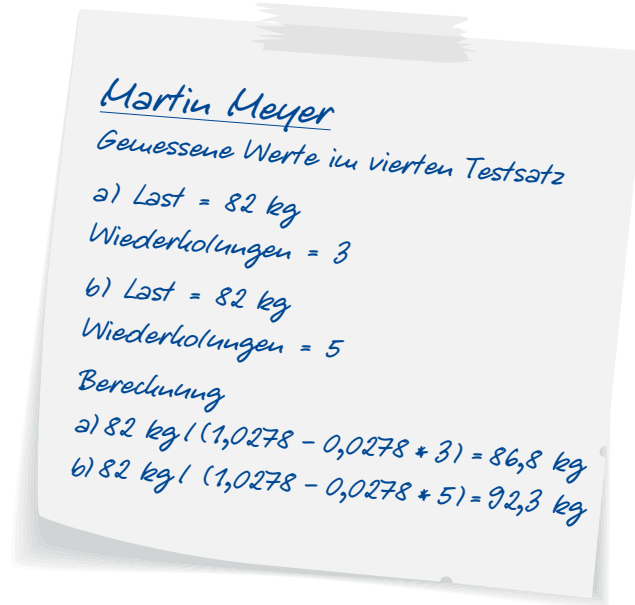 Martin Meyer
Gemessene Werte im vierten Testsatz
a) Last = 82 kg
Wiederholungen = 3
b) Last = 82 kg
Wiederholungen = 5
Berechnung
a) 82 kg / (1,0278 - 0,0278 * 3) = 86,8 kg
b) 82 kg / (1,0278 - 0,0278 * 5) = 92,3 kg